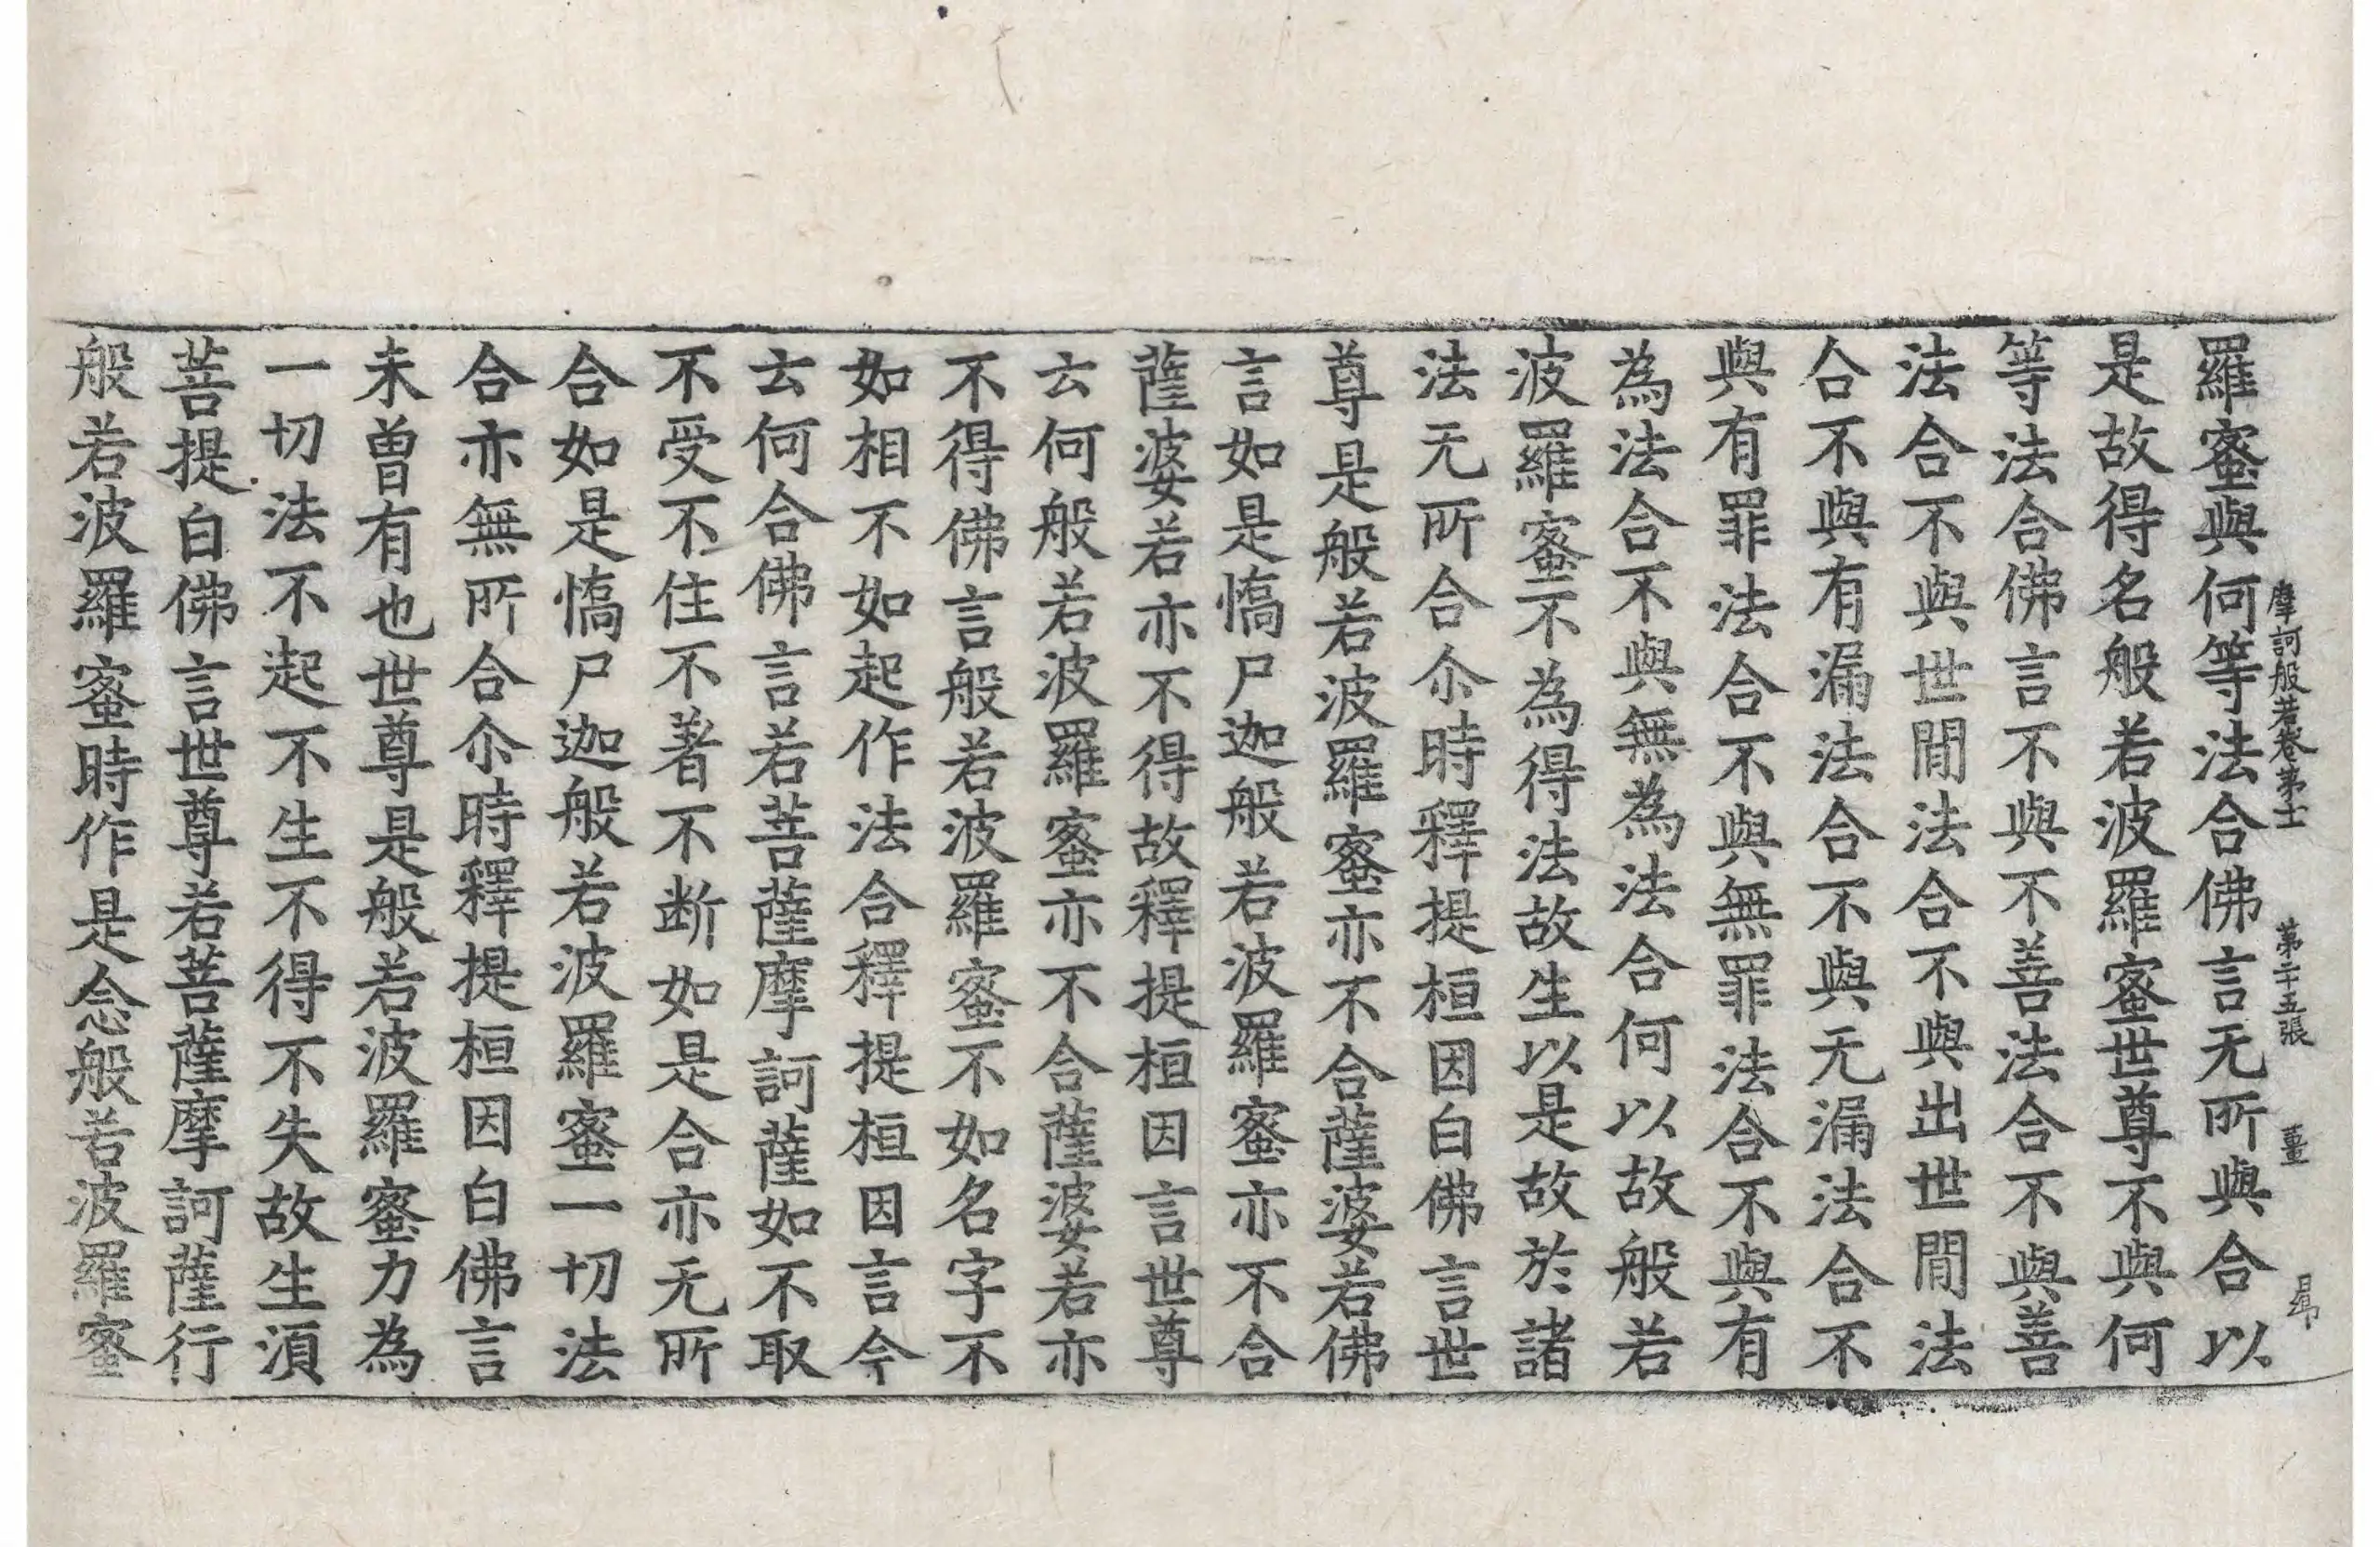 摩訶般若卷第十一 第二十五張 薑
羅蜜與何等法合佛言无所與合以
是故得名般若波羅蜜世尊不與何
等法合佛言不與不善法合不與善
法合不與世間法合不與出世間法
合不與有漏法合不與无漏法合不
與有罪法合不與無罪法合不與有
為法合不與無為法合何以故般若
波羅蜜不為得法故生以是故於諸
法无所合尒時釋提桓因白佛言世
尊是般若波羅蜜亦不合薩婆若佛
言如是憍尸迦般若波羅蜜亦不合
薩婆若亦不得故釋提桓因言世尊
云何般若波羅蜜亦不合薩婆若亦
不得佛言般若波羅蜜不如名字不
如相不如起作法合釋提桓因言今
云何合佛言若菩薩摩訶薩如不取
不受不住不著不断如是合亦无所
合如是憍尸迦般若波羅蜜一切法
合亦無所合尒時釋提桓因白佛言
未曾有也世尊是般若波羅蜜力為
一切法不起不生不得不失故生湏
菩提白佛言世尊若菩薩摩訶薩行
般若波羅蜜時作是念般若波羅蜜